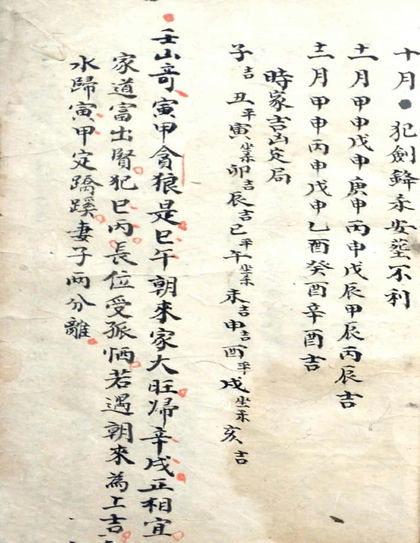 十月犯劍鋒未安塋不利
十一月甲申戊申庚申丙申戊辰甲辰丙辰吉
十二月甲申丙申戊申乙酉癸酉辛酉吉
時家吉凶定局
子吉丑平寅卯吉辰吉巳平午未吉申吉酉平戌亥吉
壬山哥寅甲貪狼是巳午朝来家大旺歸辛戌正相宜
家道富出賢犯巳丙長位受孤恓若遇朝來為上吉
水歸寅甲定蹺蹊妻子兩分離